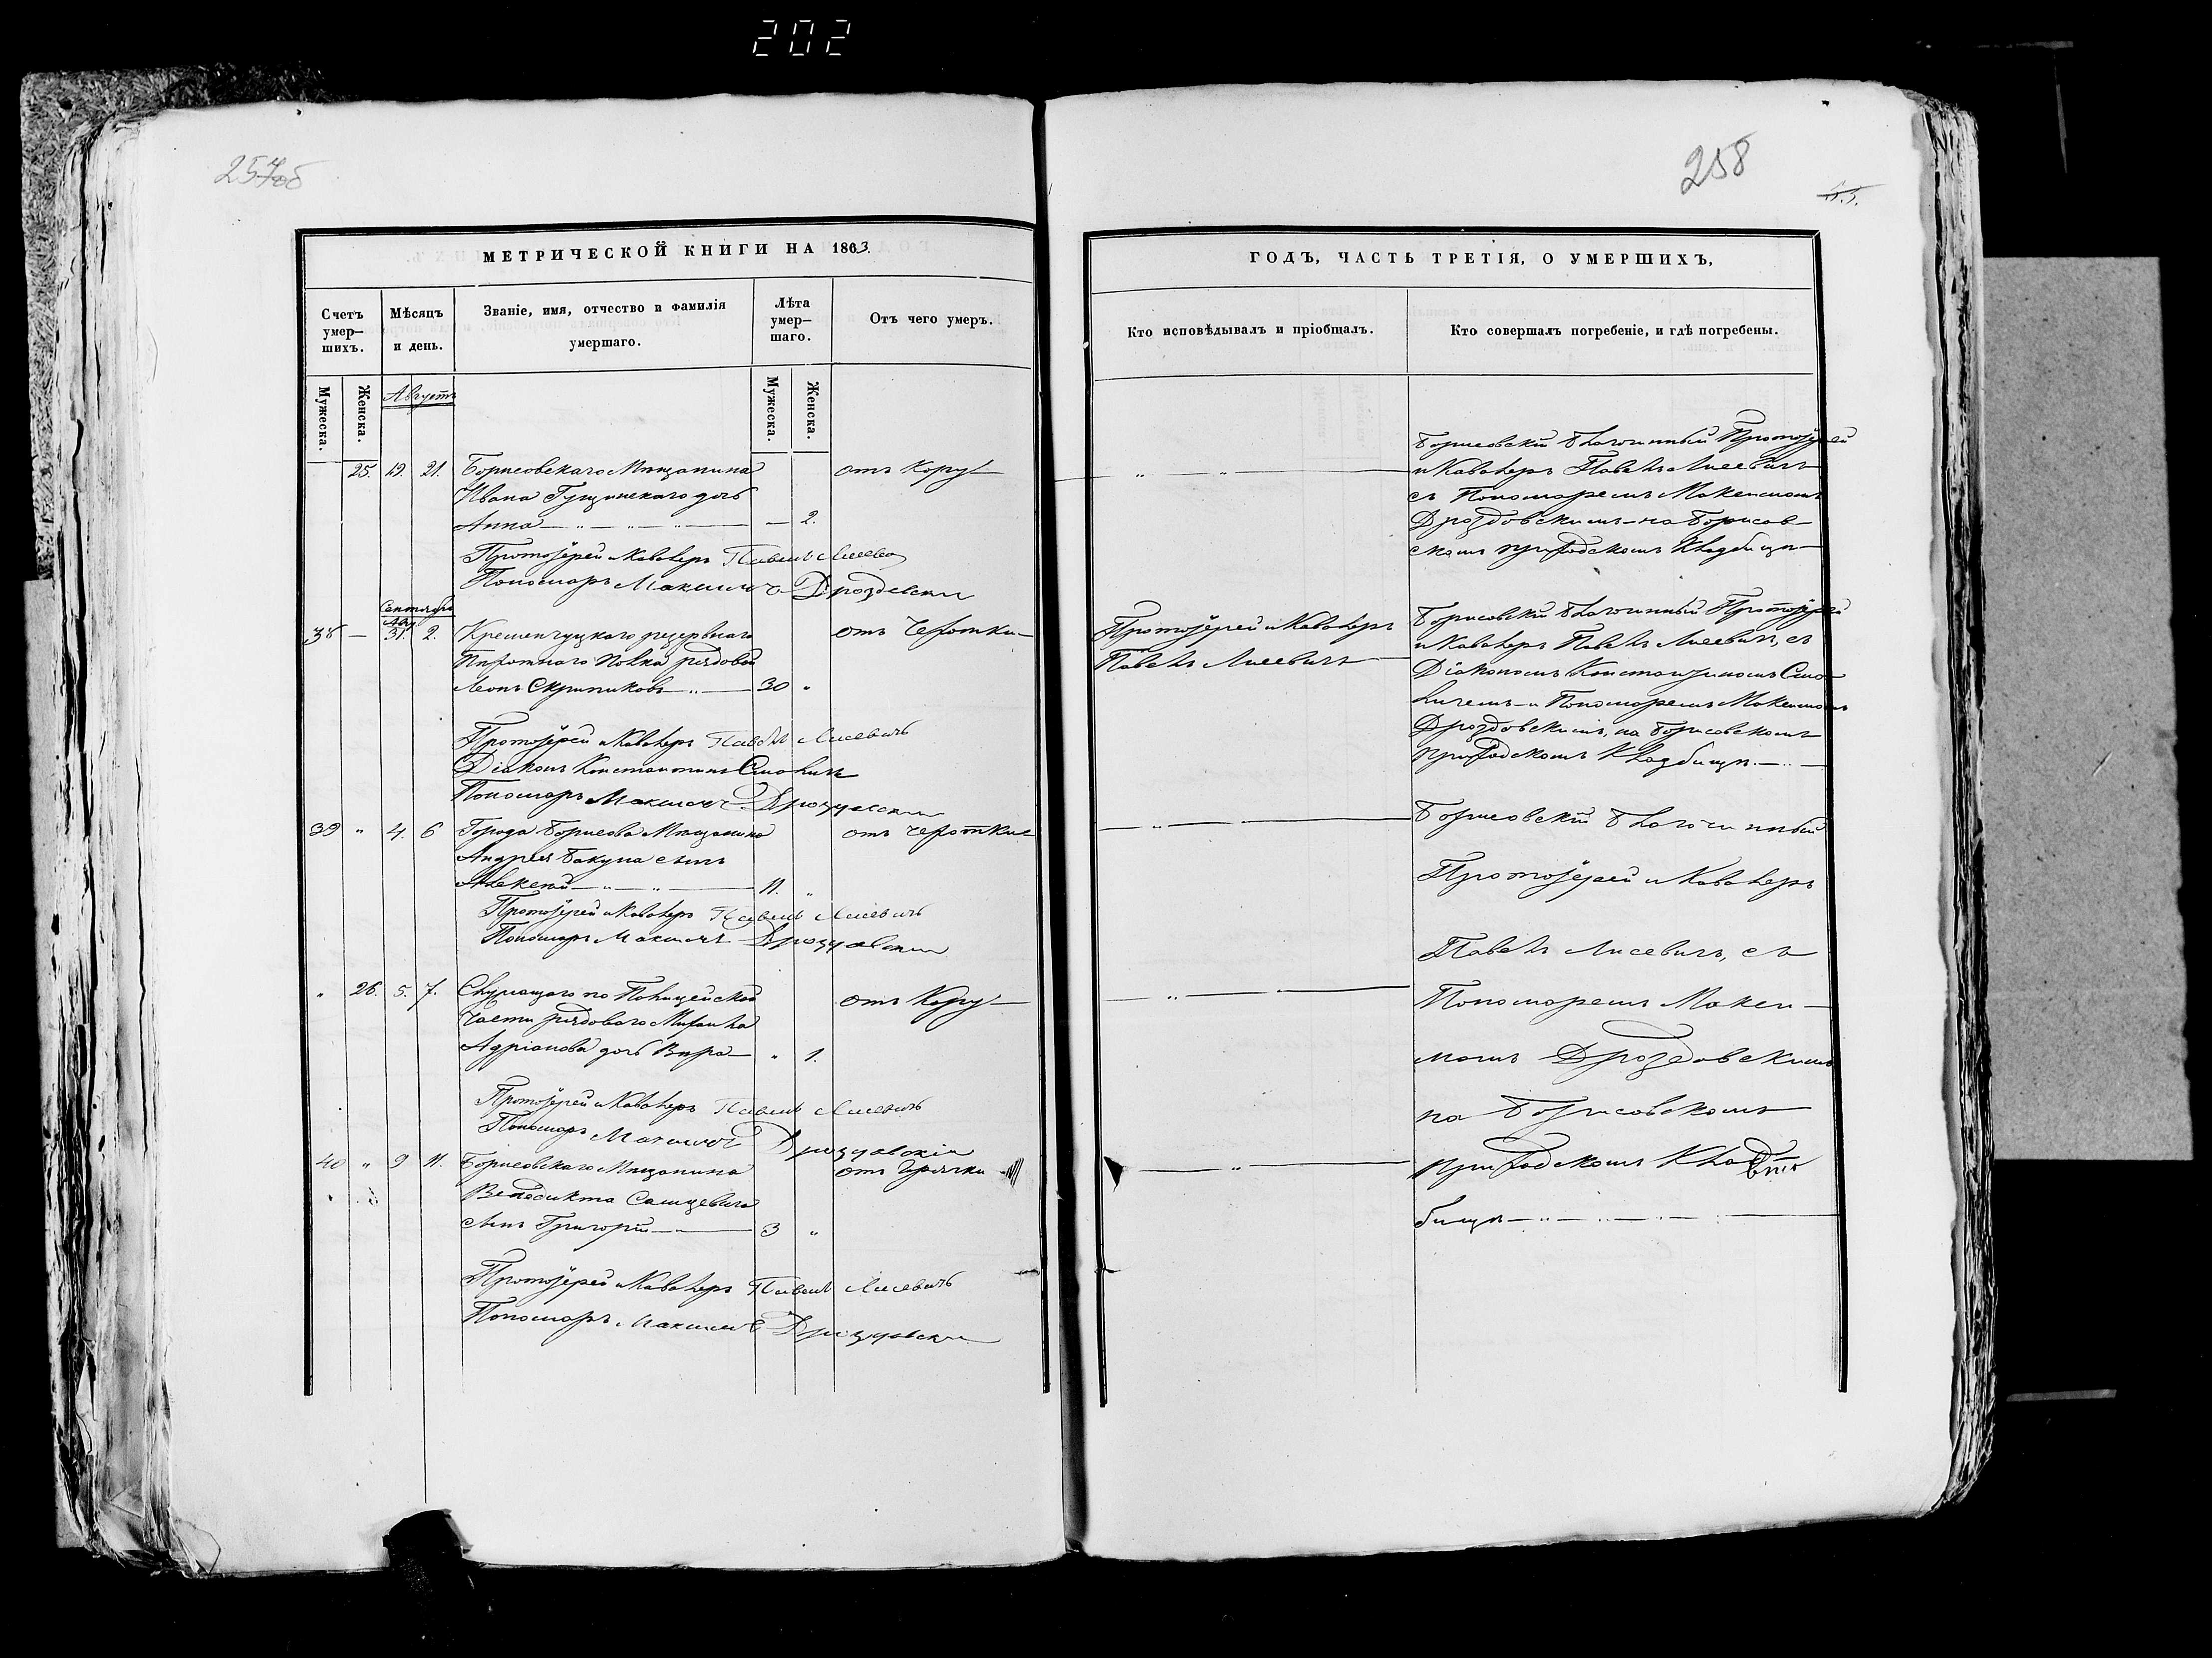 202
257об
258
МЕТРИЧЕСКОЙ КНИГИ НА 1863.
Счетъ умер-шихъ.
Мѣсяцъ и день.
Званіе, имя, отчество и фамилія умершаго.
Лѣта умер-шаго.
Отъ чего умеръ.
Мужеска.
Женска.
Мужеска.
Женска.
Августъ
25. 19. 21. Борисовскаго Мѣщанина отъ Кору
Ивана Гущинскаго дочь
Анна 2.
Протоіерей и Кавалеръ Павелъ Лисевичъ
Пономарь Максимъ Дроздовскій
Сентябрь
Авг.
38 — 31. 2. Кременчуцкаго резервнаго отъ Чахотки
Пѣхотнаго Полка рядовой
Леонъ Скрипиковъ 30 "
Протоіерей и Кавалеръ Павелъ Лисевичъ
Діаконъ Константинъ Смоличъ
Пономарь Максимъ Дроздовскій
39 " 4. 6 Города Борисова Мѣщанина отъ Чахотки
Андрея Бакуна сынъ
Алексѣй 11. "
Протоіерей и Кавалеръ Павелъ Лисевичъ
Пономарь Максимъ Дроздовскій
" 26. 5. 7. Служащаго по Полицейской отъ Кору
части рядоваго Михаила
Адріанова дочь Вѣра " 1.
Протоіерей и Кавалеръ Павелъ Лисевичъ
Пономарь Максимъ Дроздовскій
40 " 9 11. Борисовскаго Мѣщанина отъ
Венедикта
сынъ Григорій 3 "
Протоіерей и Кавалеръ Павелъ Лисевичъ
Пономарь Максимъ Дроздовскій
ГОДЪ, ЧАСТЬ ТРЕТІЯ, О УМЕРШИХЪ,
Кто исповѣдывалъ и пріобщалъ.
Кто совершалъ погребеніе, и гдѣ погребены.
Борисовскій Благочинный Протоіерей
и Кавалеръ Павелъ Лисевичъ
съ Пономаремъ Максимомъ
Дроздовскимъ на Борисов-
скомъ приходскомъ Кладбищѣ
Протоіерей и Кавалеръ
Павелъ Лисевичъ
Борисовскій Благочинный Протоіерей
и Кавалеръ Павелъ Лисевичъ, съ
Діакономъ Константиномъ Смо-
личемъ и Пономаремъ Максимомъ
Дроздовскимъ, на Борисовскомъ
приходскомъ Кладбищѣ
Борисовскій Благочинный
Протоіерей и Кавалеръ
Павелъ Лисевичъ, съ
Пономаремъ Макси-
момъ Дроздовскимъ
на Борисовскомъ
приходскомъ Клад
бищѣ